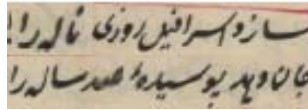 سازد اسرافیل روزی ناله را
جان دهد پوسیدهٔ صد ساله را